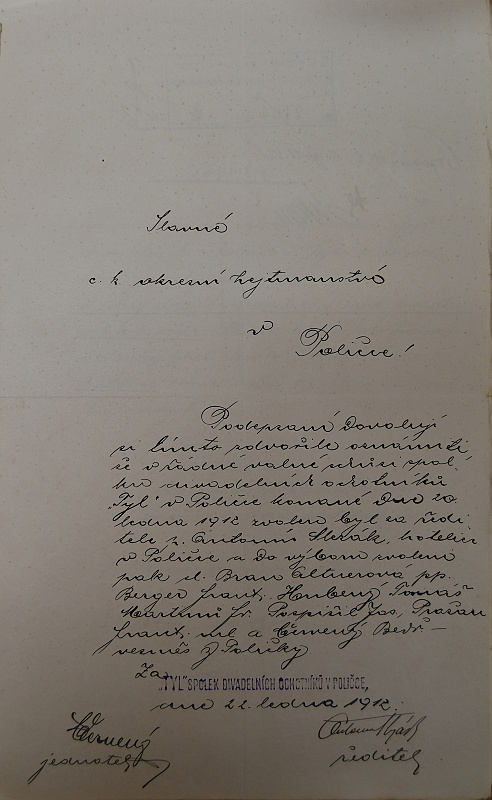 Slavné
c. k. okresní hejtmanství
v
Poličce!
Podepsaní dovolují
si tímto zdvořile oznámiti
že v řádné valné schůzi spol-
ku divadelních ochotníků
„Tyl" v Poličce konané dne 20
ledna 1912 zvolen byl za ředi-
tele p. Antonín Slezák, hotelier
v Poličce a do výboru zvoleni
pak sl. Altnerová pp.
Berger Frant. Tomáš
Martinů Fr. Pospíšil Jos,
Frant. ml a Červený Bedř.
vesměs z Poličky
Za
„TYL" SPOLEK DIVADELNÍCH OCHOTNÍKŮ V POLIČCE,
dne 22. ledna 1912.
Červený
jednatel
ředitel